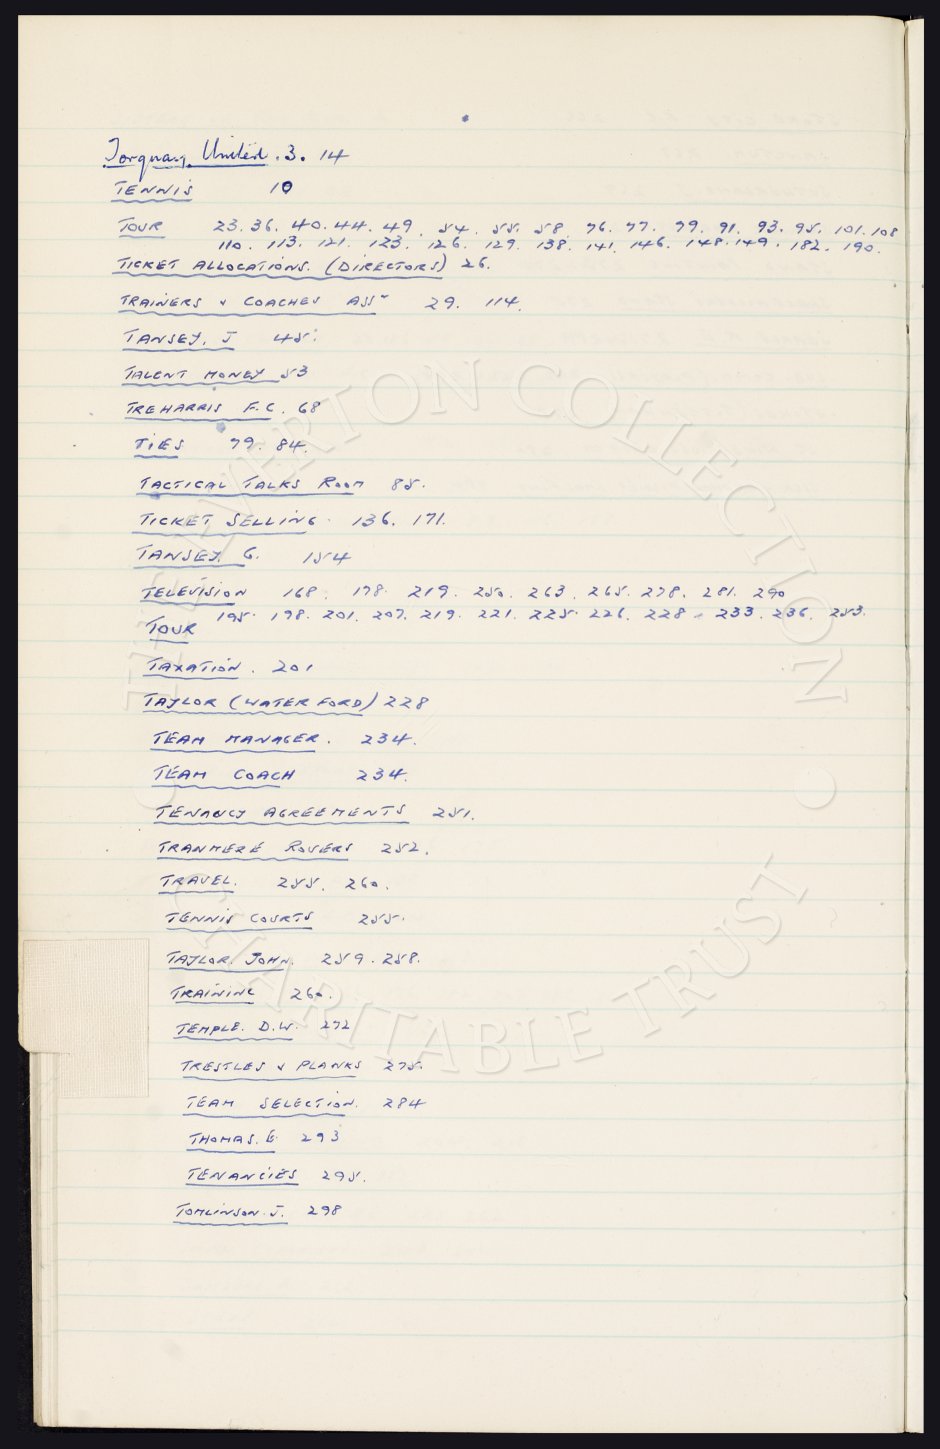 Torquay United. 3. 14
TENNIS 10
TOUR 23. 36. 40. 44. 49. 54. 55. 58. 76. 77. 79. 91. 93. 95. 101. 108
110. 113. 121. 123. 126. 129. 138. 141. 146. 148. 149. 182. 190.
TICKET ALLOCATIONS. (DIRECTORS) 26.
TRAINERS & COACHES ASSN 29. 114.
TANSEY. J 45.
TALENT MONEY 53
TREHARRIS F.C. 68
TIES 79. 84.
TACTICAL TALKS ROOM 85.
TICKET SELLING. 136. 171.
TANSEY. G. 154
TELEVISION 168. 178. 219. 250. 263. 265. 278. 281. 290
TOUR 195. 198. 201. 207. 219. 221. 225. 226. 228. 233. 236. 253.
TAXATION. 201
TAYLOR (WATERFORD) 228
TEAM MANAGER. 234.
TEAM COACH 234.
TENANCY AGREEMENTS 251.
TRANMERE ROVERS 252.
TRAVEL. 255. 260.
TENNIS COURTS 255.
TAYLOR. JOHN. 259. 258.
TRAINING 260.
TEMPLE. D.W. 272
TRESTLES & PLANKS 275.
TEAM SELECTION. 284
THOMAS. E. 293
TENANCIES 295.
TOMLINSON. J. 298
THE EVERTON COLLECTION
CHARITABLE TRUST